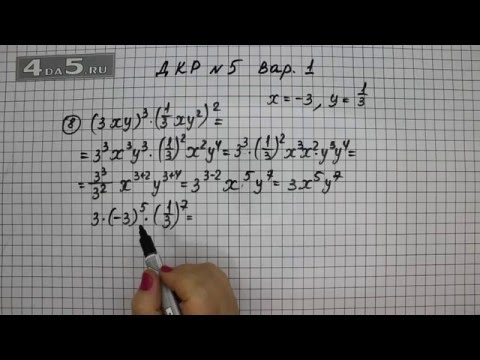 4DA5.RU
ДКР №5 Вар. 1
x = -3, y = 1/3
⑧ (3xy)³·(1/3 xy²)² =
= 3³x³y³·(1/3)²x²y⁴ = 3³·(1/3)²x³x²·y³y⁴ =
= 3³/3² x³⁺²y³⁺⁴ = 3³⁻²x·⁵y⁷ = 3x⁵y⁷
3·(-3)⁵·(1/3)⁷ =